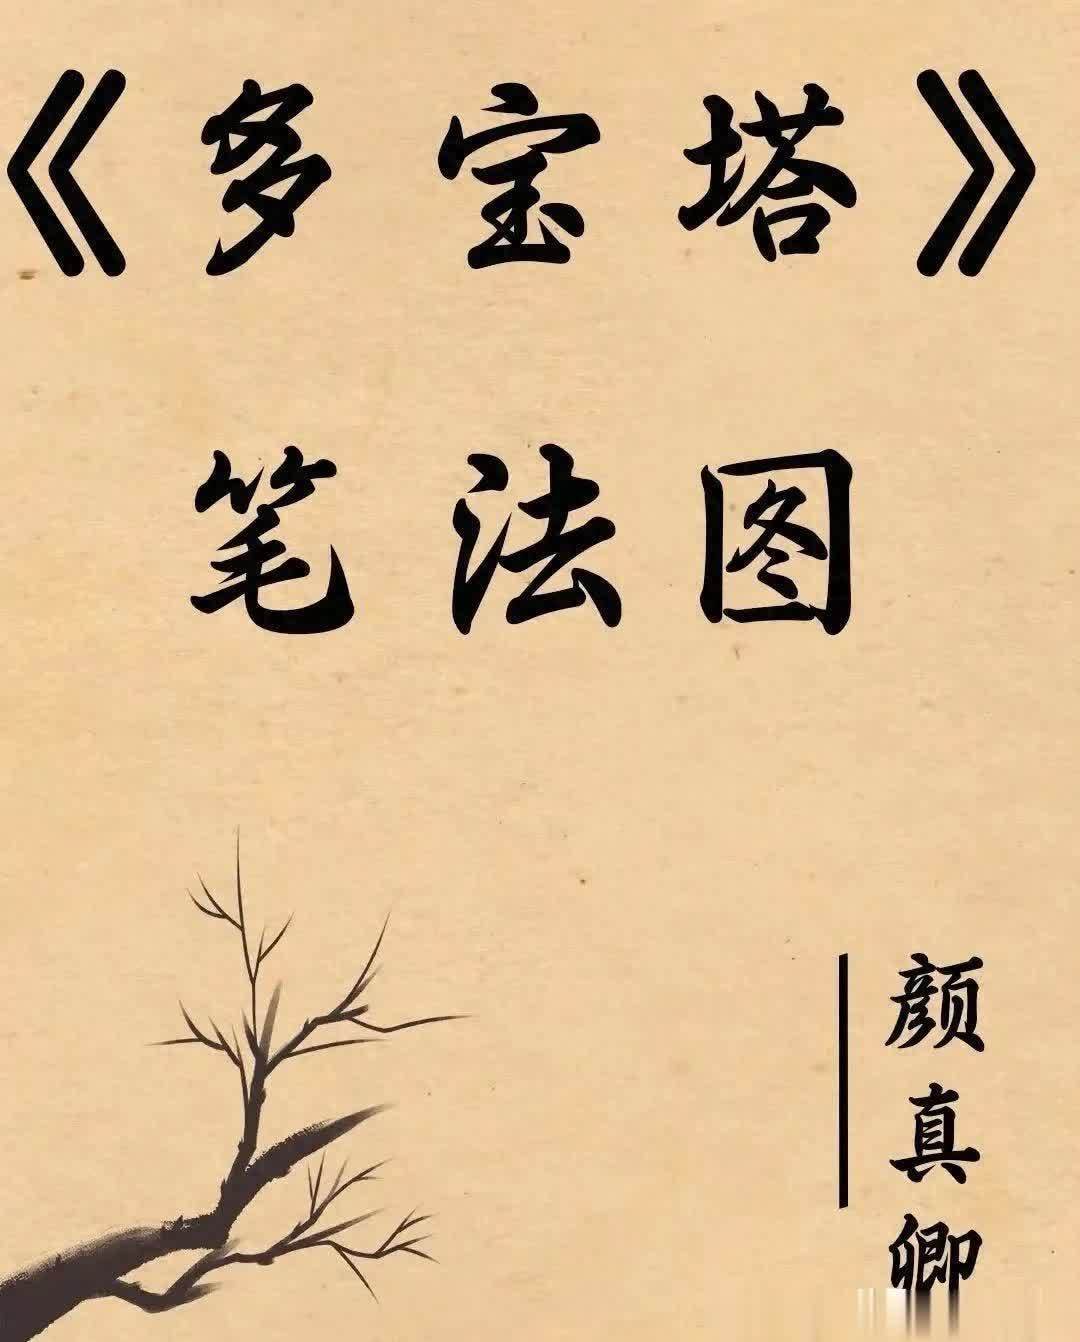 《多宝塔》
笔法图
颜真卿